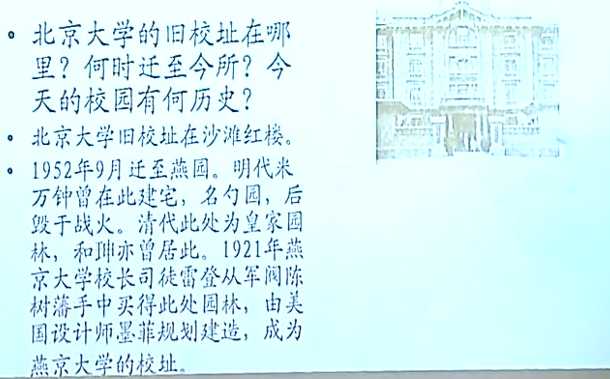 • 北京大学的旧校址在哪
里？何时迁至今所？今
天的校园有何历史？
• 北京大学旧校址在沙滩红楼。
• 1952年9月迁至燕园。明代米
万钟曾在此建宅，名勺园，后
毁于战火。清代此处为皇家园
林，和珅亦曾居此。1921年燕
京大学校长司徒雷登从军阀陈
树藩手中买得此处园林，由美
国设计师墨菲规划建造，成为
燕京大学的校址。